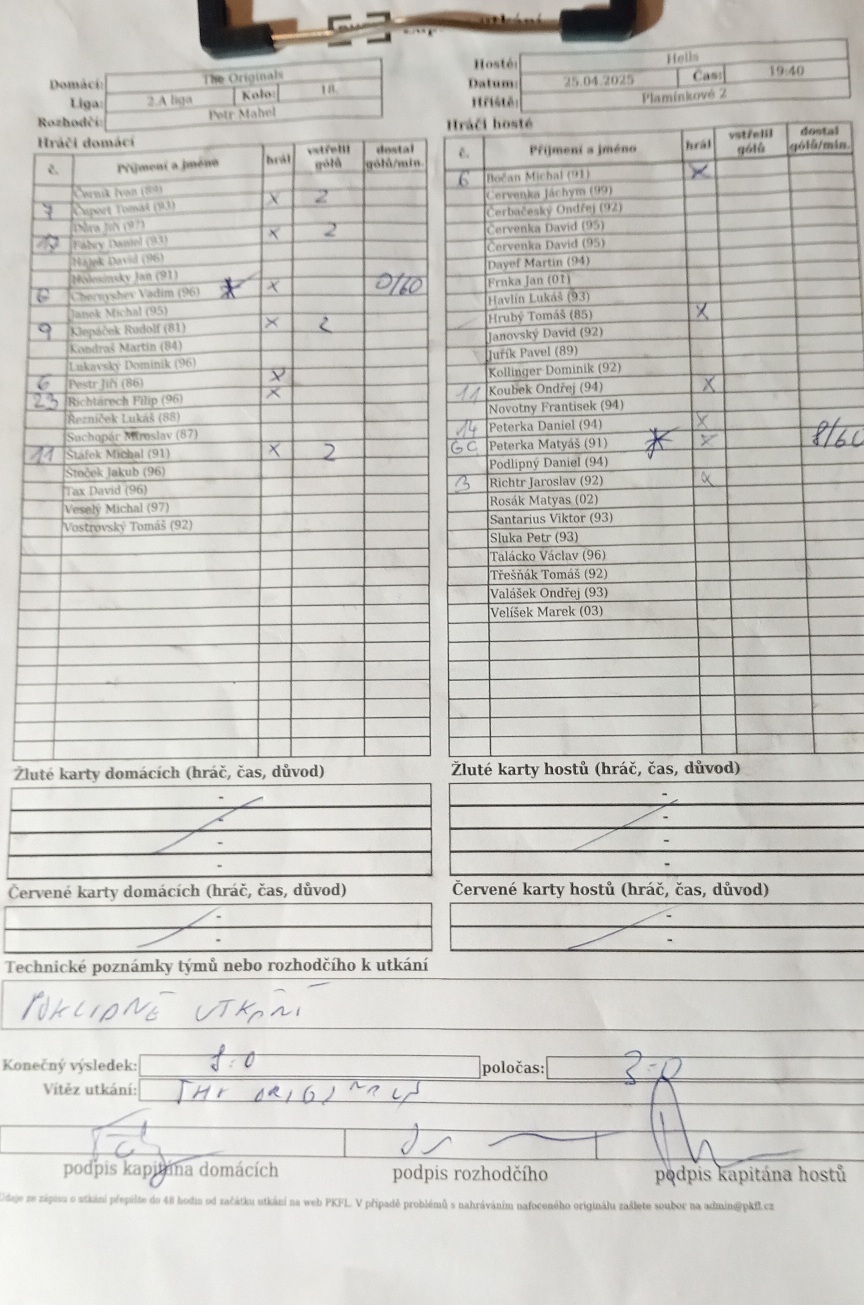 utkání
Domácí: The Originals
Liga: 2.A liga Kolo: 18.
Rozhodčí: Petr Mahel
Hosté: Hells
Datum: 25.04.2025 Čas: 19:40
Hřiště: Plamínkové 2
Hráči domácí
č. Příjmení a jméno hrál vstřelil gólů dostal gólů/min.
Černík Ivan (89)
7 Čuport Tomáš (83) X 2
Dóra Jiří (97)
17 Fábry Daniel (93) X 2
Hájek David (96)
Holesinsky Jan (91)
6 Chernyshev Vadim (96) X 0/60
Janek Michal (95)
9 Klepáček Rudolf (81) X 2
Kondraš Martin (84)
Lukavský Dominik (96)
6 Pestr Jiří (86) X
23 Richtárech Filip (96) X
Řezníček Lukáš (88)
Suchopár Miroslav (87)
11 Štáfek Michal (91) X 2
Štoček Jakub (96)
Tax David (96)
Veselý Michal (97)
Vostrovský Tomáš (92)
Hráči hosté
č. Příjmení a jméno hrál vstřelil gólů dostal gólů/min.
6 Bočan Michal (91) X
Červenka Jáchym (99)
Čerbačeský Ondřej (92)
Červenka David (95)
Červenka David (95)
Dayef Martin (94)
Frnka Jan (01)
Havlín Lukáš (93)
Hrubý Tomáš (85) X
Janovský David (92)
Juřík Pavel (89)
Kollinger Dominik (92)
11 Koubek Ondřej (94) X
Novotny Frantisek (94)
14 Peterka Daniel (94) X
GC Peterka Matyáš (91) X 8/60
Podlipný Daniel (94)
3 Richtr Jaroslav (92) X
Rosák Matyas (02)
Santarius Viktor (93)
Sluka Petr (93)
Talácko Václav (96)
Třešňák Tomáš (92)
Valášek Ondřej (93)
Velíšek Marek (03)
Žluté karty domácích (hráč, čas, důvod)
-
-
-
-
Žluté karty hostů (hráč, čas, důvod)
-
-
-
-
Červené karty domácích (hráč, čas, důvod)
-
-
Červené karty hostů (hráč, čas, důvod)
-
-
Technické poznámky týmů nebo rozhodčího k utkání
POKLIDNÉ UTKÁNÍ
Konečný výsledek: 8:0 poločas: 3:0
Vítěz utkání: THE ORIGINALS
podpis kapitána domácích podpis rozhodčího podpis kapitána hostů
Údaje ze zápisu o utkání přepište do 48 hodin od začátku utkání na web PKFL. V případě problémů s nahráváním nafoceného originálu zašlete soubor na admin@pkfl.cz